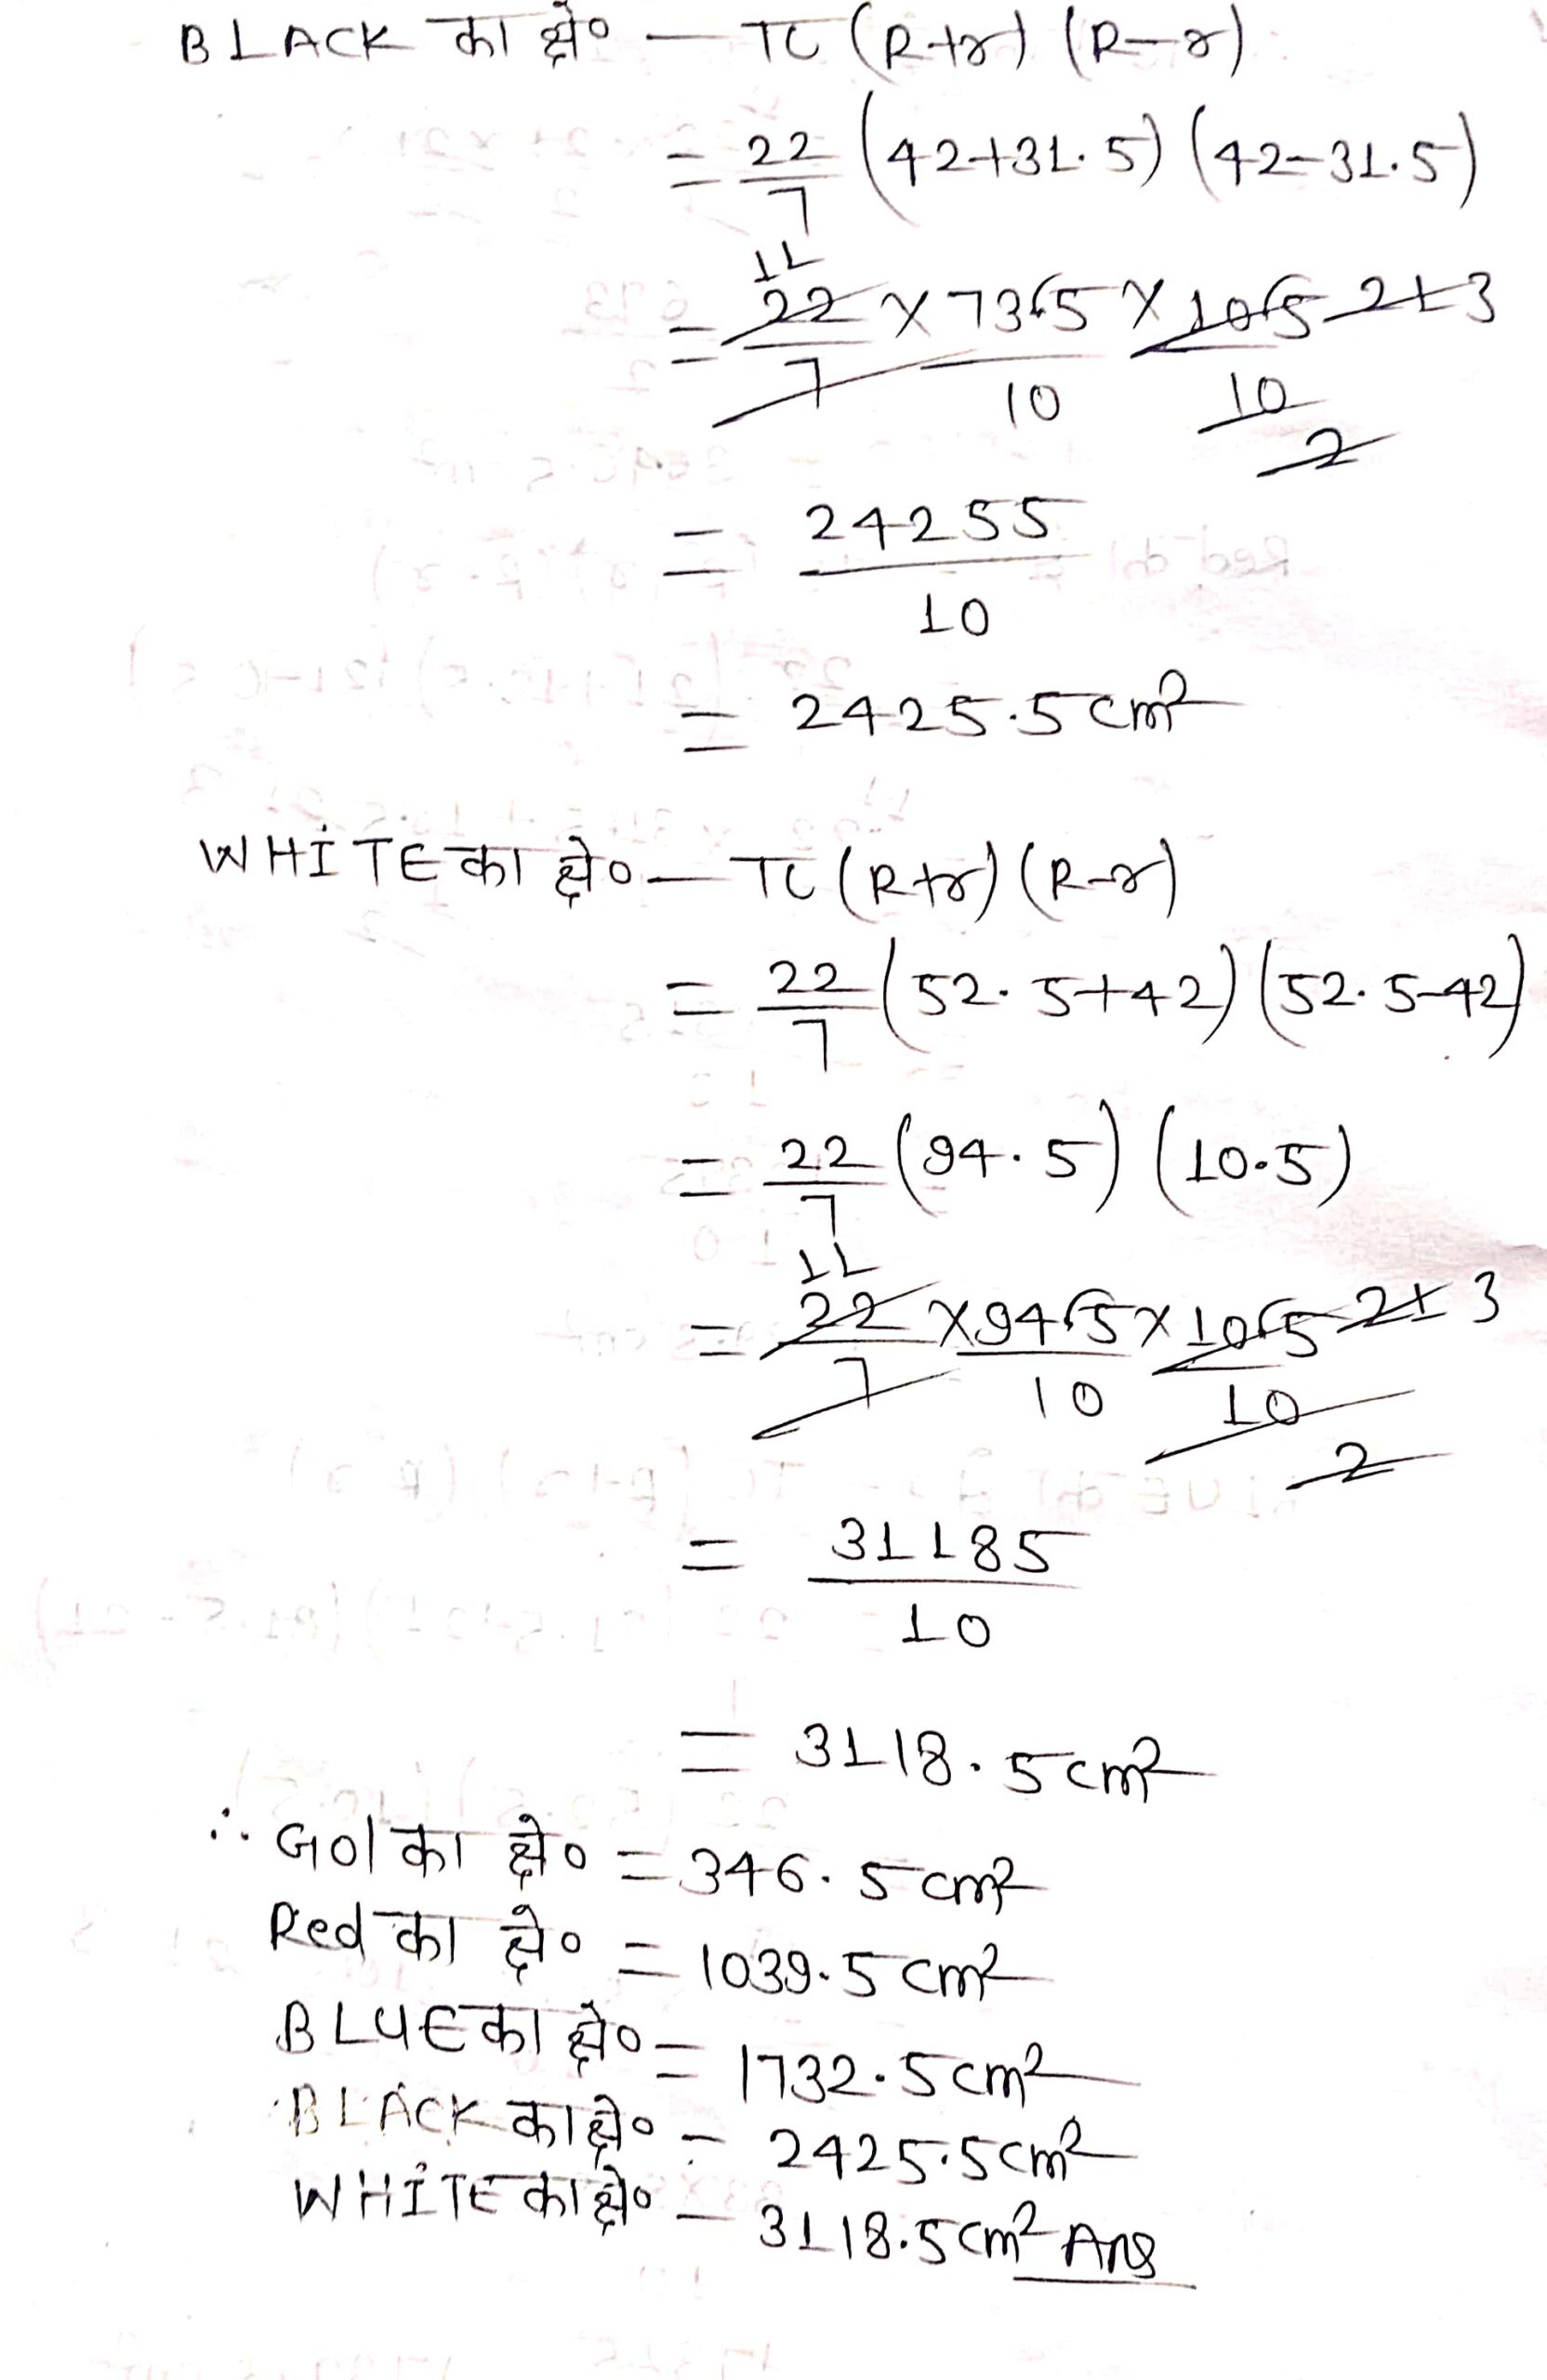 BLACK का क्षे० — π (R+r) (R-r)
= 22/7 (42+31.5) (42-31.5)
11
= 22/7 × 735/10 × 105/10 21 3
2
= 24255/10
= 2425.5 cm²
WHITE का क्षे० — π (R+r) (R-r)
= 22/7 (52.5+42) (52.5-42)
= 22/7 (94.5) (10.5)
11
= 22/7 × 945/10 × 105/10 21 3
2
= 31185/10
= 3118.5 cm²
∴ Gol का क्षे० = 346.5 cm²
Red का क्षे० = 1039.5 cm²
BLUE का क्षे० = 1732.5 cm²
BLACK का क्षे० - 2425.5 cm²
WHITE का क्षे० - 3118.5 cm² Ans